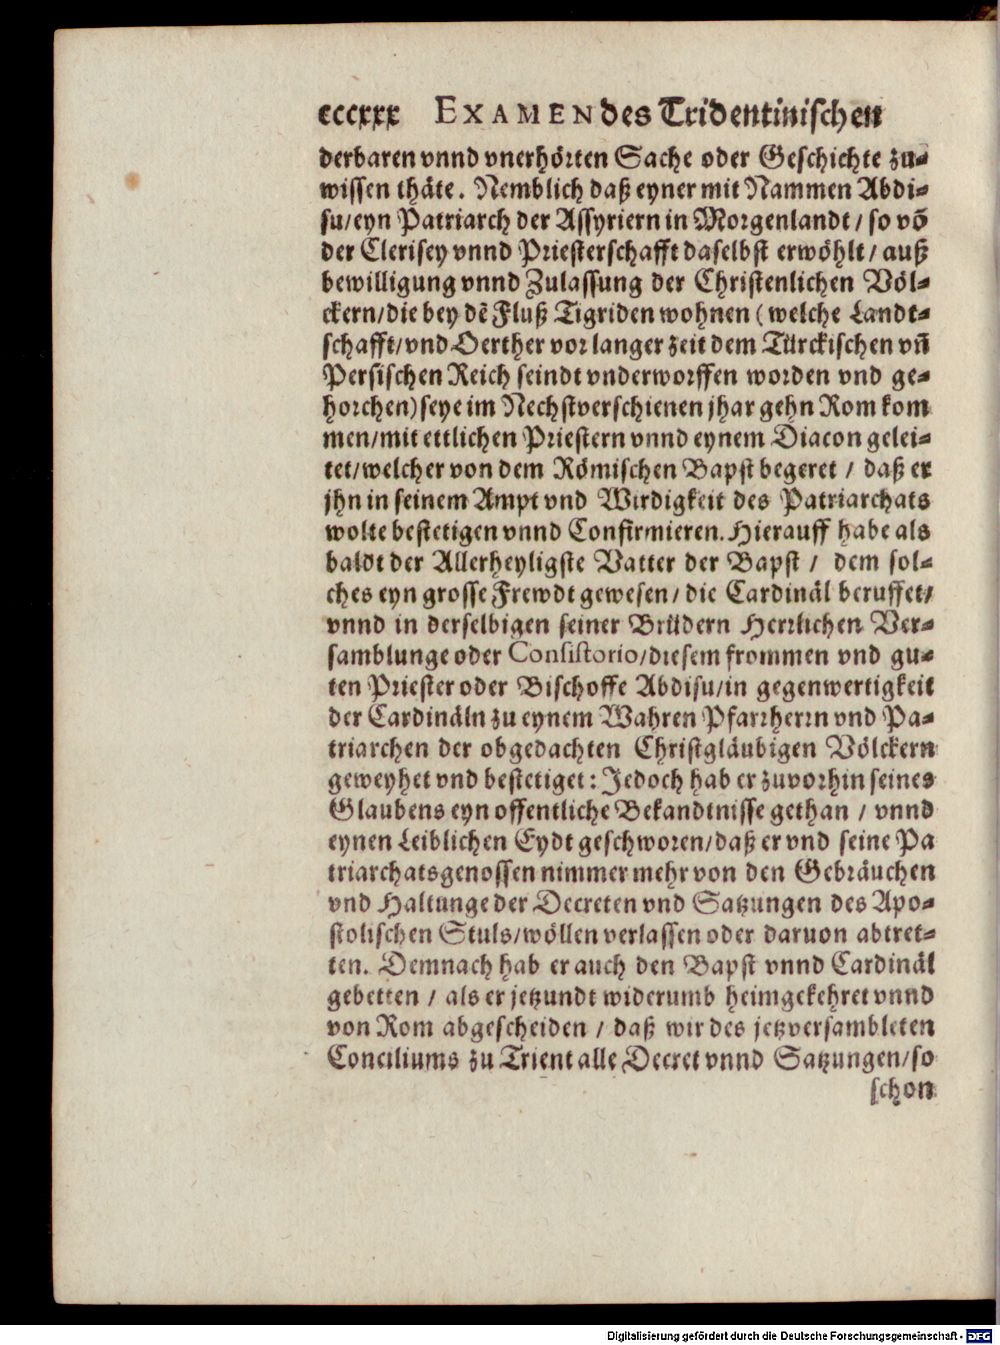 cccxxx EXAMEN des Tridentinischen
derbaren vnnd vnerhörten Sache oder Geschichte zu-
wissen thäte. Nemblich daß eyner mit Nammen Abdi-
su/eyn Patriarch der Assyriern in Morgenlandt / so võ
der Clerisey vnnd Priesterschafft daselbst erwöhlt / auß
bewilligung vnnd Zulassung der Christenlichen Völ-
ckern/die bey dẽ Fluß Tigriden wohnen ( welche Landt-
schafft/vnd Oerther vor langer zeit dem Türckischen vñ
Persischen Reich seindt vnderworffen worden vnd ge-
horchen) seye im Nechstverschienen jhar gehn Rom kom
men/mit ettlichen Priestern vnnd eynem Diacon gelei-
tet/welcher von dem Römischen Bapst begeret / daß er
jhn in seinem Ampt vnd Wirdigkeit des Patriarchats
wolte bestetigen vnnd Confirmieren. Hierauff habe als
baldt der Allerheyligste Vatter der Bapst / dem sol-
ches eyn grosse Frewdt gewesen / die Cardinäl beruffet/
vnnd in derselbigen seiner Brüdern Herrlichen Ver-
samblunge oder Consistorio/diesem frommen vnd gu-
ten Priester oder Bischoffe Abdisu/in gegenwertigkeit
der Cardinäln zu eynem Wahren Pfarrherrn vnd Pa-
triarchen der obgedachten Christgläubigen Völckern
geweyhet vnd bestetiget: Jedoch hab er zuvorhin seines
Glaubens eyn offentliche Bekandtnisse gethan / vnnd
eynen Leiblichen Eydt geschworen/daß er vnd seine Pa
triarchatsgenossen nimmer mehr von den Gebräuchen
vnd Haltunge der Decreten vnd Satzungen des Apo-
stolischen Stuls/wöllen verlassen oder daruon abtret-
ten. Demnach hab er auch den Bapst vnnd Cardinäl
gebetten / als er jetzundt widerumb heimgekehret vnnd
von Rom abgescheiden / daß wir des jetzversambleten
Conciliums zu Trient alle Decret vnnd Satzungen/so
schon
Digitalisierung gefördert durch die Deutsche Forschungsgemeinschaft - DFG